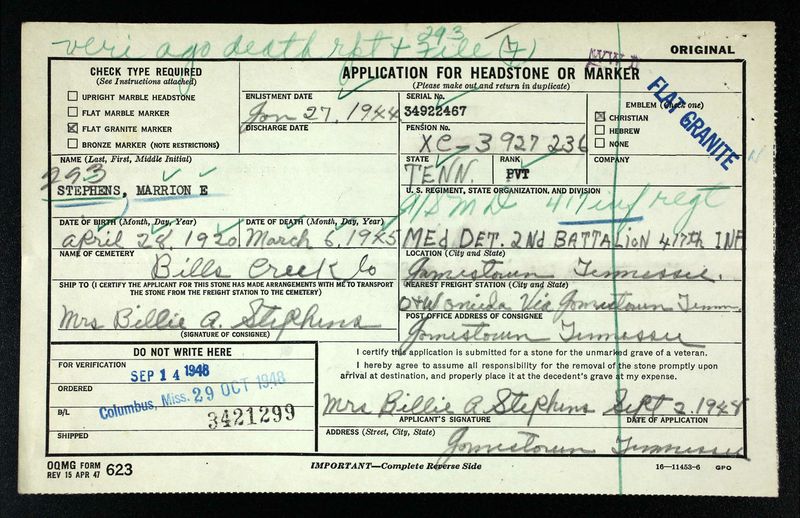 veri ago death rpt + File (7)
293
WW II
ORIGINAL
CHECK TYPE REQUIRED
(See Instructions attached)
UPRIGHT MARBLE HEADSTONE
FLAT MARBLE MARKER
FLAT GRANITE MARKER
BRONZE MARKER (NOTE RESTRICTIONS)
APPLICATION FOR HEADSTONE OR MARKER
(Please make out and return in duplicate)
ENLISTMENT DATE
Jan 27, 1944
DISCHARGE DATE
SERIAL No.
34922467
PENSION No.
XC-3 927 236
EMBLEM (Check one)
CHRISTIAN
HEBREW
NONE
FLAT GRANITE
NAME (Last, First, Middle Initial)
293
STEPHENS, MARRION E
STATE
TENN.
RANK
PVT
COMPANY
U. S. REGIMENT, STATE ORGANIZATION, AND DIVISION
417 inf regt
MEd DET. 2Nd BATTALION 417th INF
DATE OF BIRTH (Month, Day, Year)
April 28, 1920
DATE OF DEATH (Month, Day, Year)
March 6, 1945
NAME OF CEMETERY
Bills Creek Co
LOCATION (City and State)
Jamestown Tennessee.
SHIP TO (I CERTIFY THE APPLICANT FOR THIS STONE HAS MADE ARRANGEMENTS WITH ME TO TRANSPORT
THE STONE FROM THE FREIGHT STATION TO THE CEMETERY)
Mrs Billie A. Stephens
(SIGNATURE OF CONSIGNEE)
NEAREST FREIGHT STATION (City and State)
O+W Oneida Via Jamestown Tenn.
POST OFFICE ADDRESS OF CONSIGNEE
Jamestown Tennessee
DO NOT WRITE HERE
FOR VERIFICATION
SEP 14 1948
ORDERED
Columbus, Miss. 29 OCT 1948
B/L
3421299
SHIPPED
I certify this application is submitted for a stone for the unmarked grave of a veteran.
I hereby agree to assume all responsibility for the removal of the stone promptly upon
arrival at destination, and properly place it at the decedent's grave at my expense.
Mrs Billie A Stephens Sept 2, 1948
APPLICANT'S SIGNATURE
DATE OF APPLICATION
ADDRESS (Street, City, State)
Jamestown Tennessee
OQMG FORM
REV 15 APR 47 623
IMPORTANT—Complete Reverse Side
16—11453-6 GPO